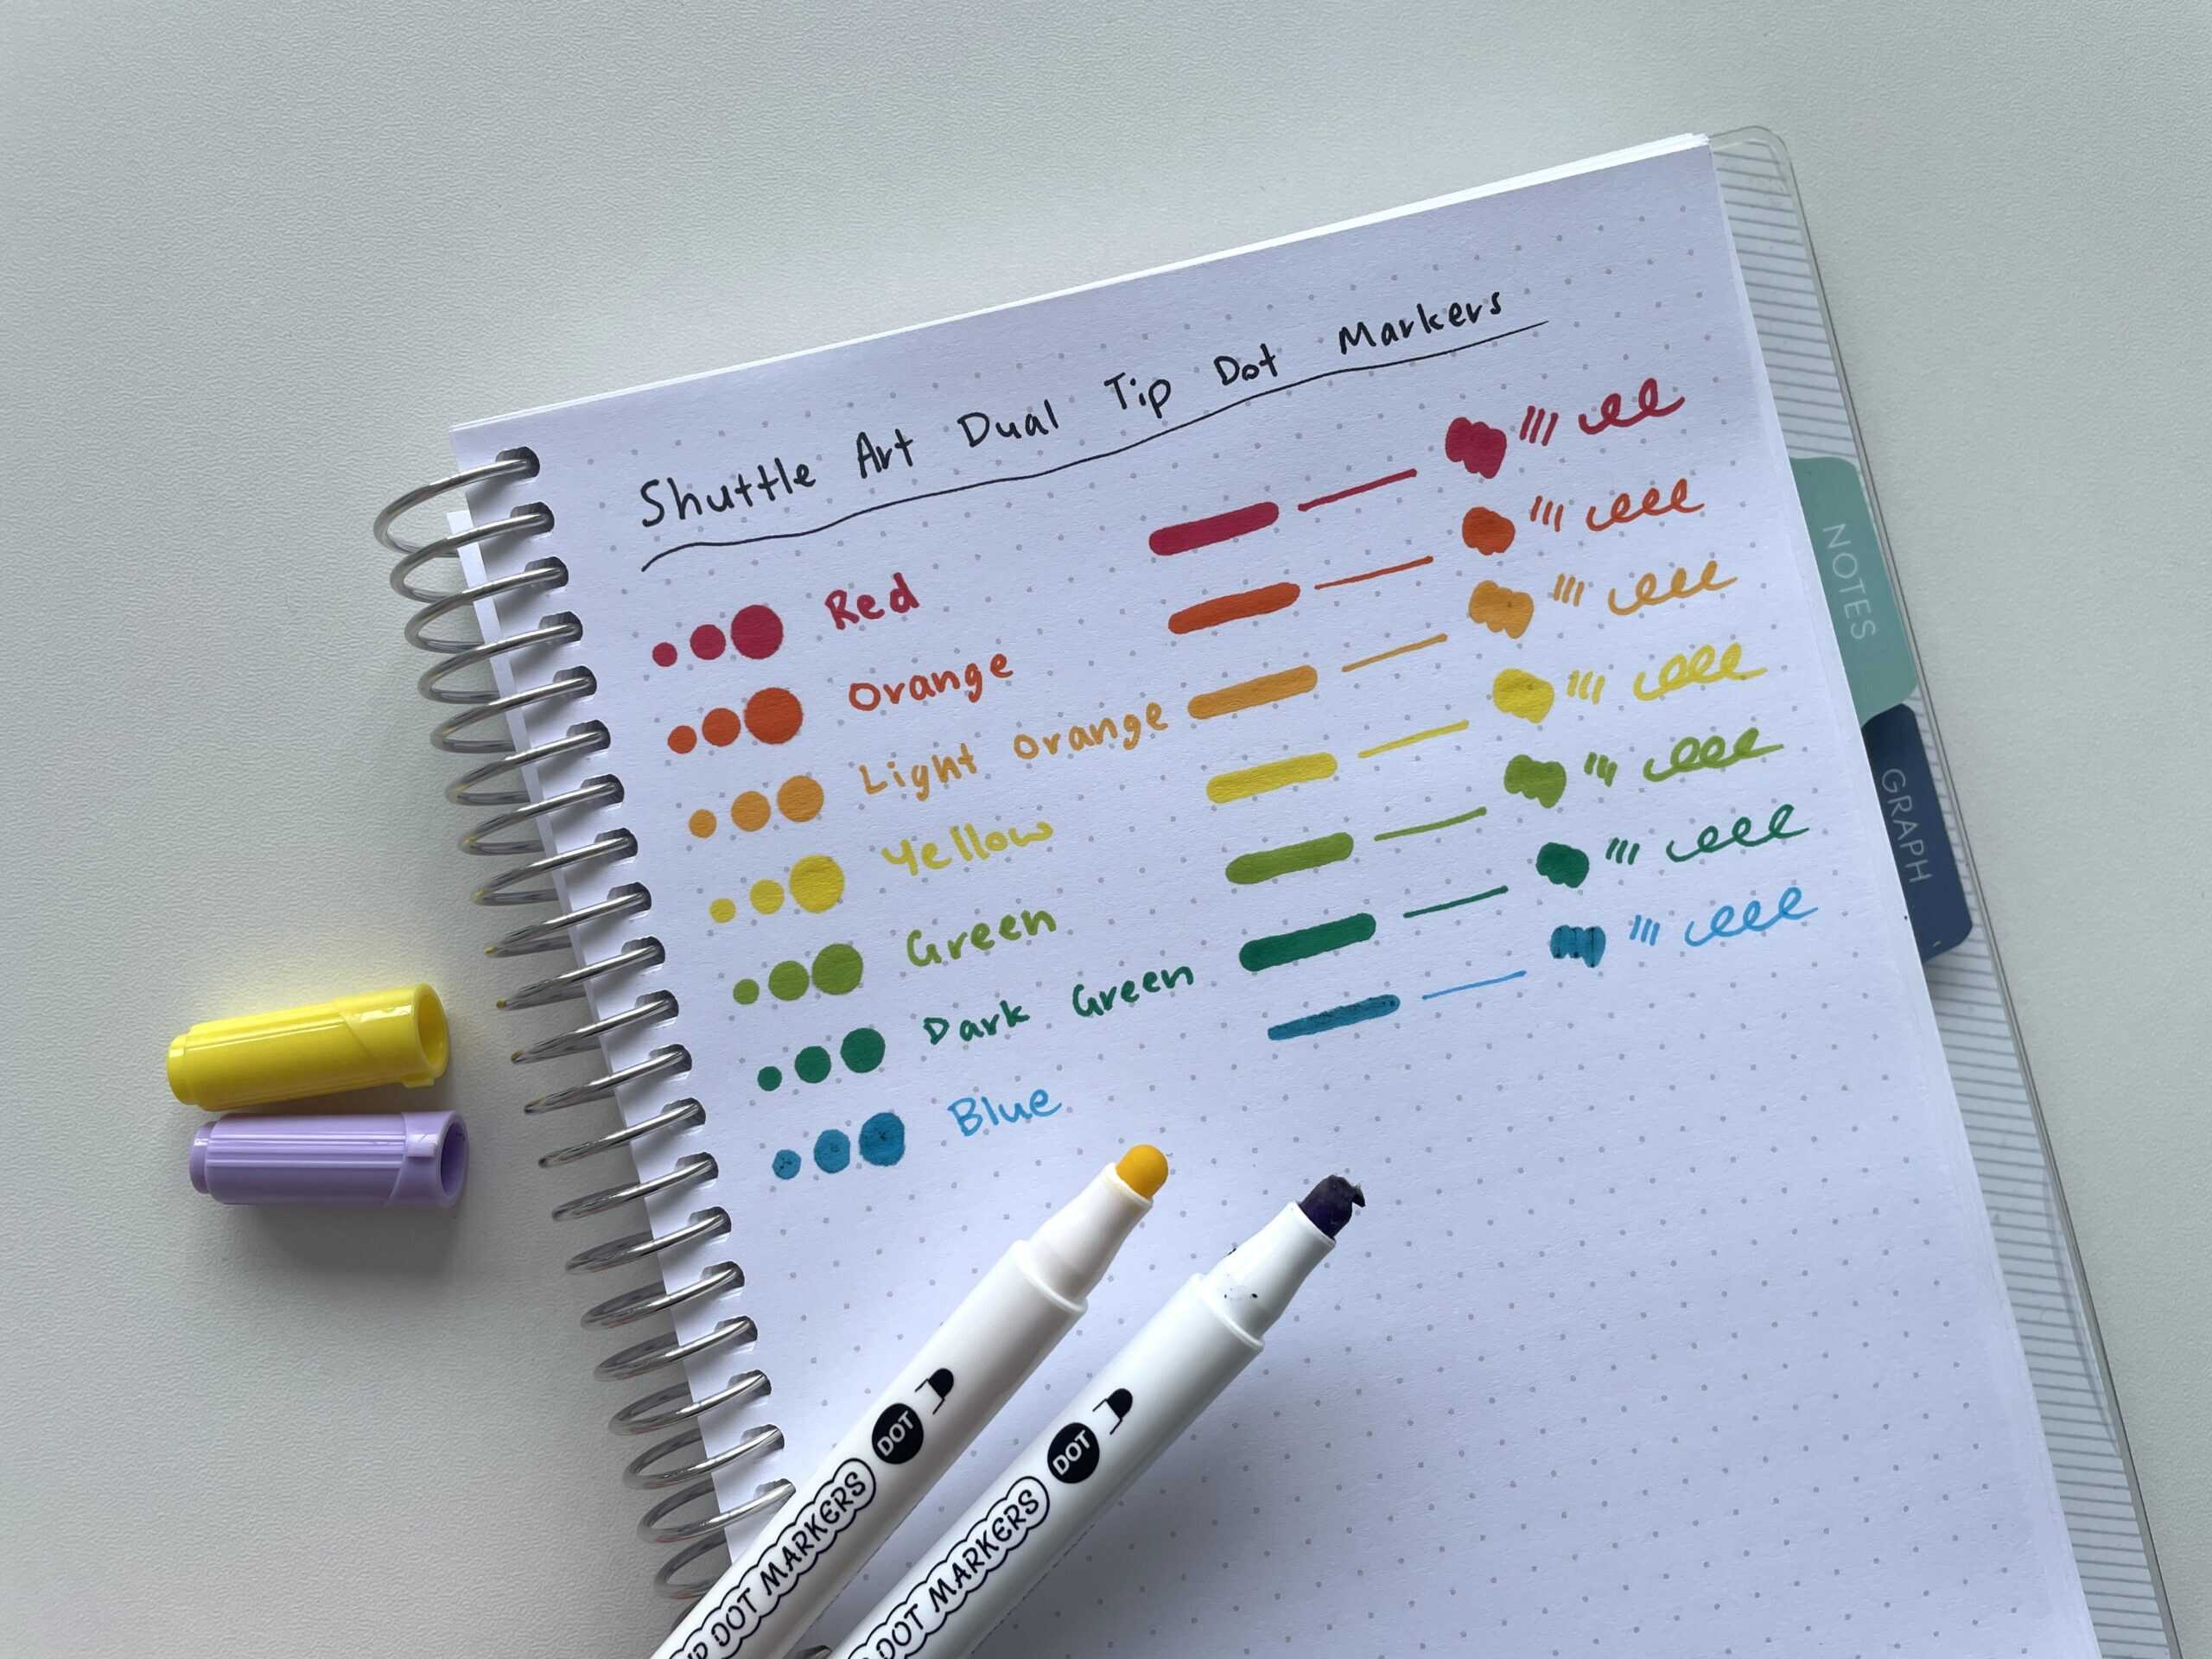 Shuttle Art Dual Tip Dot Markers
Red
Orange
Light Orange
Yellow
Green
Dark Green
Blue
NOTES
GRAPH
DOT MARKERS DOT
DOT MARKERS DOT